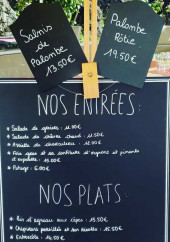 Salmis
de
Palombe
13.50€
Palombe
Rôtie
19.50€
NOS ENTRÉES:
Salade de gésiers : 11.00€
Salade de chèvre chaud : 11.50€
Assiette de charcuterie : 11.00€
Foie gras et sa confiture d'oignons et piments
d'espelette : 15.00€
Potage : 6.00€
NOS PLATS
Ris d'agneau aux cèpes : 15.50€
Chipirons persillés et son risotto : 15.50€
Entrecôte : 14.50€